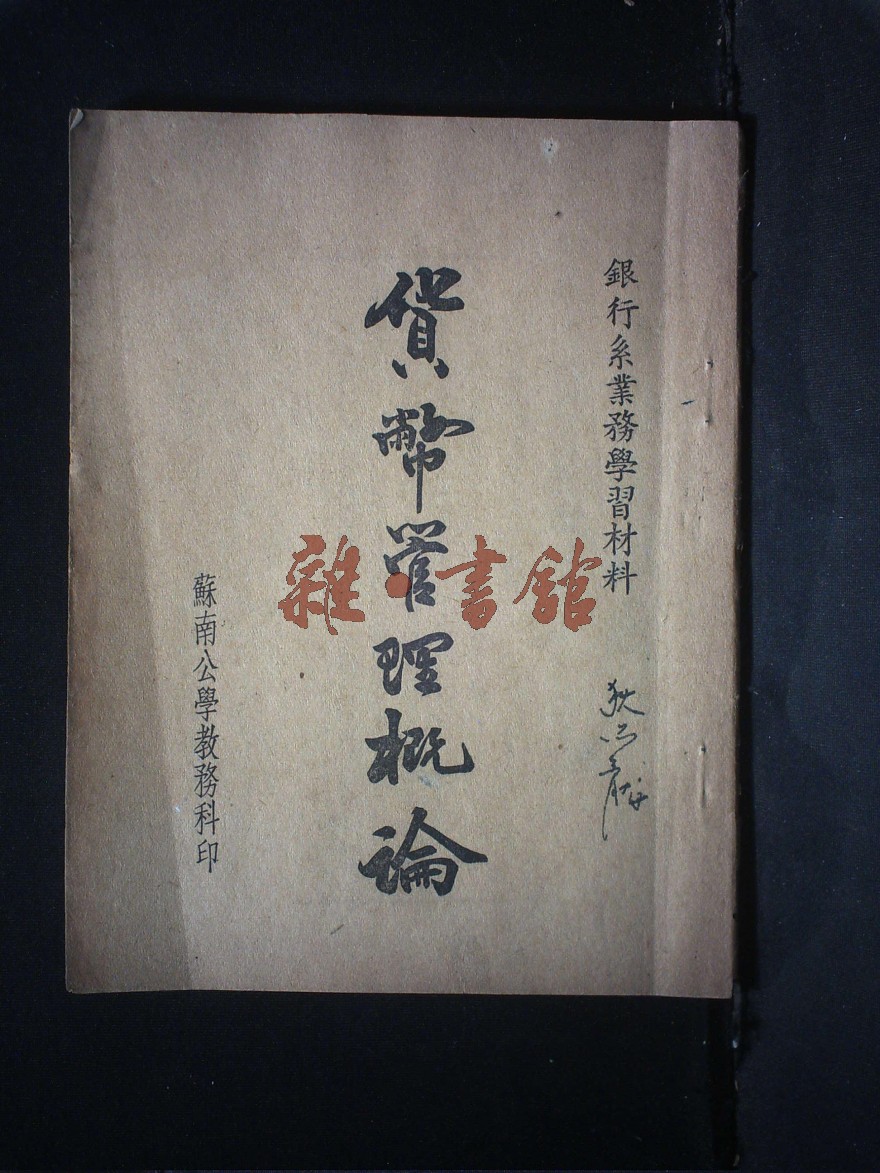 銀行系業務學習材料
貨幣管理概論
蘇南公學教務科印
雜·書館